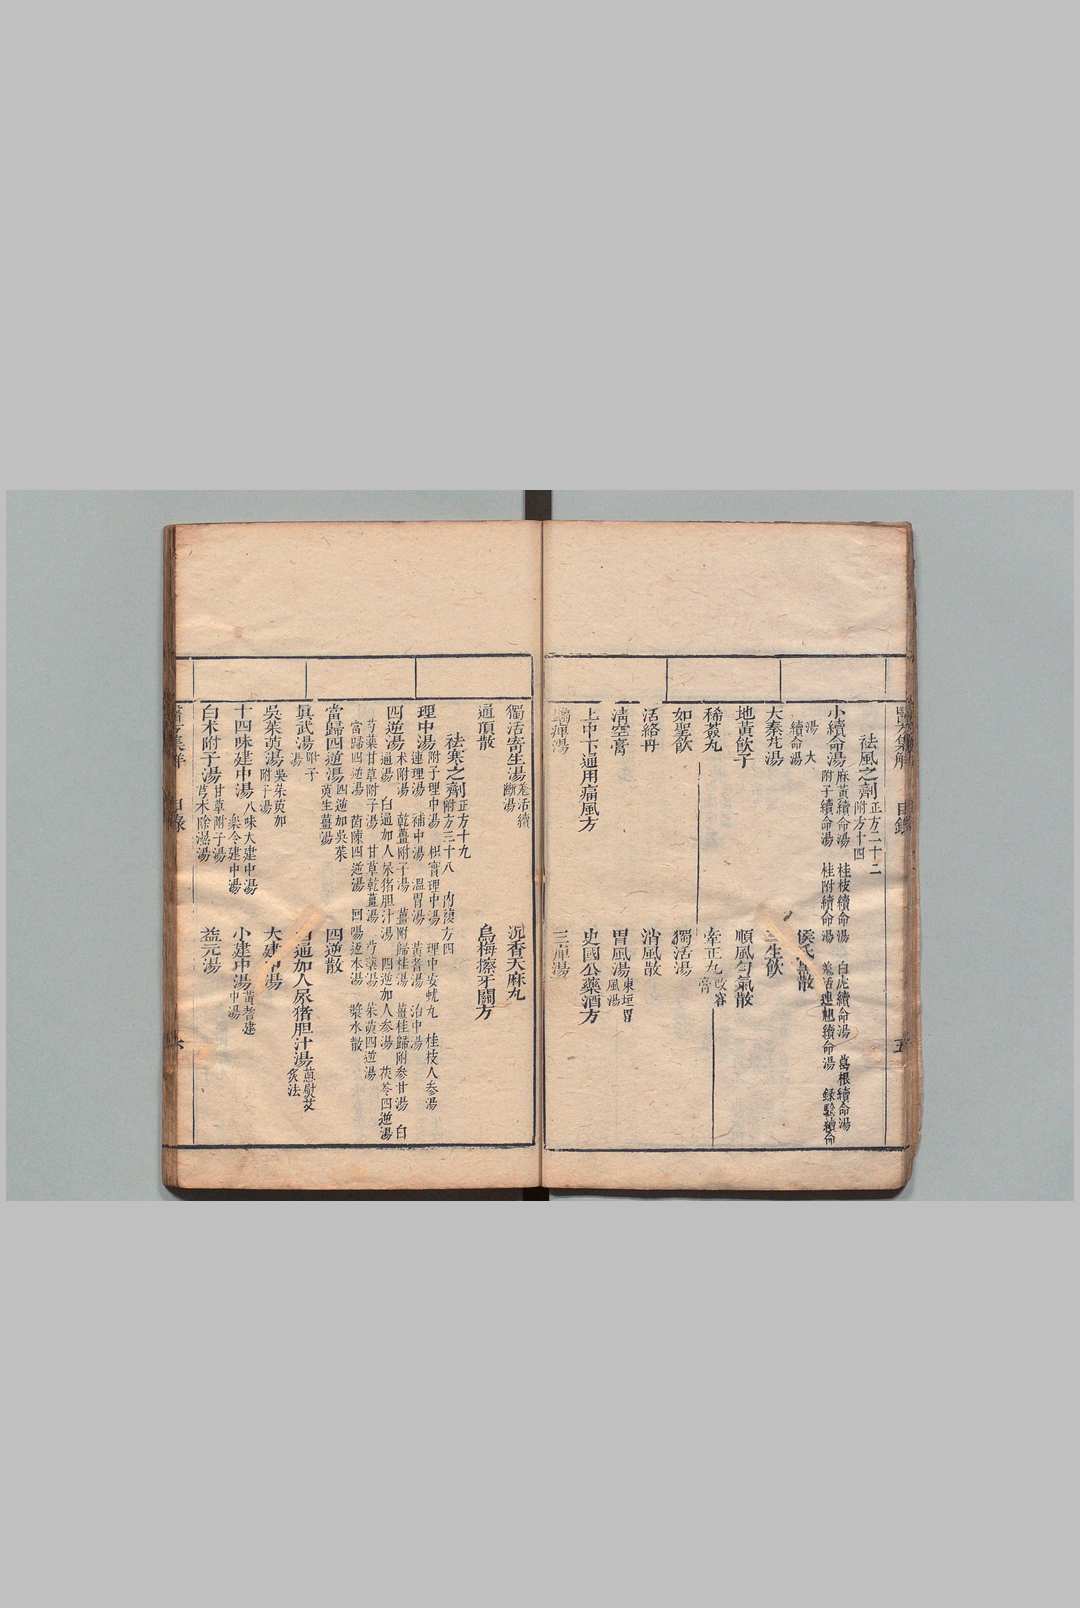 醫方集解 目錄 五
祛風之劑 正方二十二 附方十四
小續命湯 麻黃續命湯 桂枝續命湯 白虎續命湯 葛根續命湯 附子續命湯 桂附續命湯 羌活連翹續命湯 錄驗續命湯 大續命湯
侯氏 散
大秦艽湯
三生飲
地黃飲子
順風勻氣散
稀薟丸
牽正丸 改容膏
如聖飲
獨活湯
活絡丹
消風散
清空膏
胃風湯 東垣胃風湯
上中下通用痛風方
史國公藥酒方
蠲痺湯
三痺湯
獨活寄生湯 羌活續斷湯
沉香天麻丸
通頂散
烏梅擦牙關方
祛寒之劑 正方十九 附方三十八 內複方四
理中湯 附子理中湯 枳實理中湯 理中安蚘丸 桂枝人參湯 連理湯 補中湯 溫胃湯 黃耆湯 治中湯
四逆湯 薑附歸桂湯 薑桂歸附參甘湯 白通湯 白通加人尿猪胆汁湯 四逆加人參湯 茯苓四逆湯 朮附湯 乾薑附子湯
芍藥甘草附子湯 甘草乾薑湯 芍藥湯 茱萸四逆湯 當歸四逆湯 茵陳四逆湯 回陽返本湯 漿水散
當歸四逆湯 四逆加吳茱萸生薑湯
四逆散
眞武湯 附子湯
白通加人尿猪胆汁湯 葱熨艾灸法
吳茱萸湯 吳茱萸加附子湯
大建中湯
十四味建中湯 八味大建中湯 樂令建中湯
小建中湯 黃耆建中湯
白朮附子湯 甘草附子湯 芎朮除濕湯
益元湯
醫方集解 目錄 六